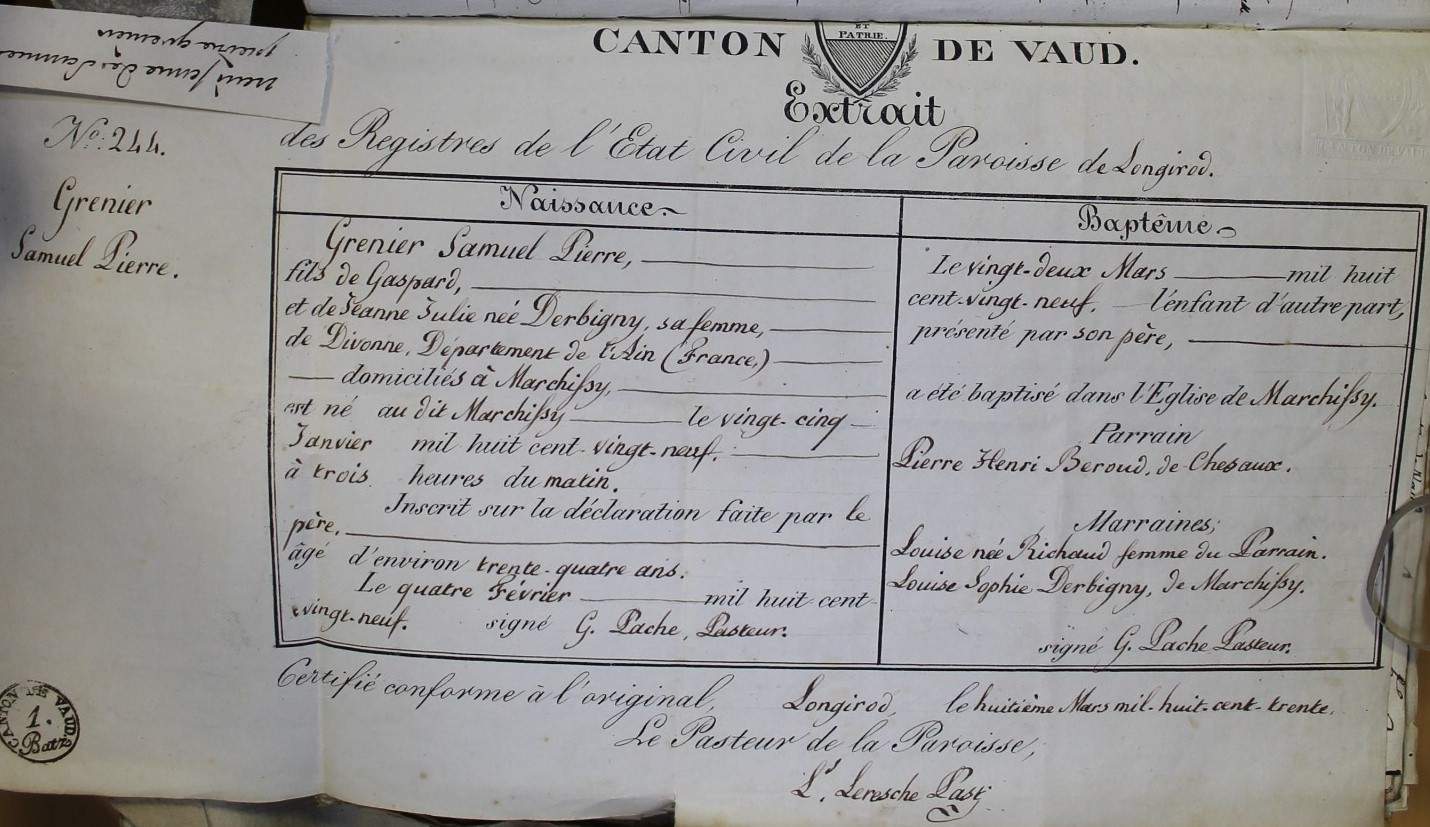 CANTON DE VAUD.
ET
PATRIE.
Extrait
des Registres de l'Etat Civil de la Paroisse de Longirod.
No: 244.
Grenier
Samuel Pierre.
Naissance.
Grenier Samuel Pierre,
fils de Gaspard,
et de Jeanne Julie née Derbigny, sa femme,
de Divonne, Département de l'Ain (France,)
domiciliés à Marchissy,
est né au dit Marchissy le vingt-cinq
Janvier mil huit cent-vingt-neuf.
à trois heures du matin.
Inscrit sur la déclaration faite par le
père,
âgé d'environ trente-quatre ans.
Le quatre Février mil huit cent
vingt-neuf. signé G. Pache, Pasteur.
Baptême
Le vingt-deux Mars mil huit
cent-vingt-neuf. l'enfant d'autre part,
présenté par son père,
a été baptisé dans l'Eglise de Marchissy.
Parrain
Pierre Henri Beroud, de Chesaux.
Marraines;
Louise née Richaud femme du Parrain.
Louise Sophie Derbigny, de Marchissy.
signé G. Pache Pasteur.
Certifié conforme à l'original, Longirod, le huitième Mars mil-huit-cent-trente.
Le Pasteur de la Paroisse,
Ls. Leresche Past:
CANTON DE VAUD
1.
Batz